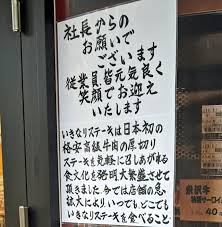 社長からの
お願いで
ございます
従業員、皆元気良く
笑顔でお迎え
いたします
いきなりステーキは日本初の
格安高級牛肉の厚切り
ステーキを気軽に召し上がれる
食文化を発明大繁盛させて
頂きました。今では店舗の急
拡大により、いつでも、どこでも
いきなりステーキを食べること